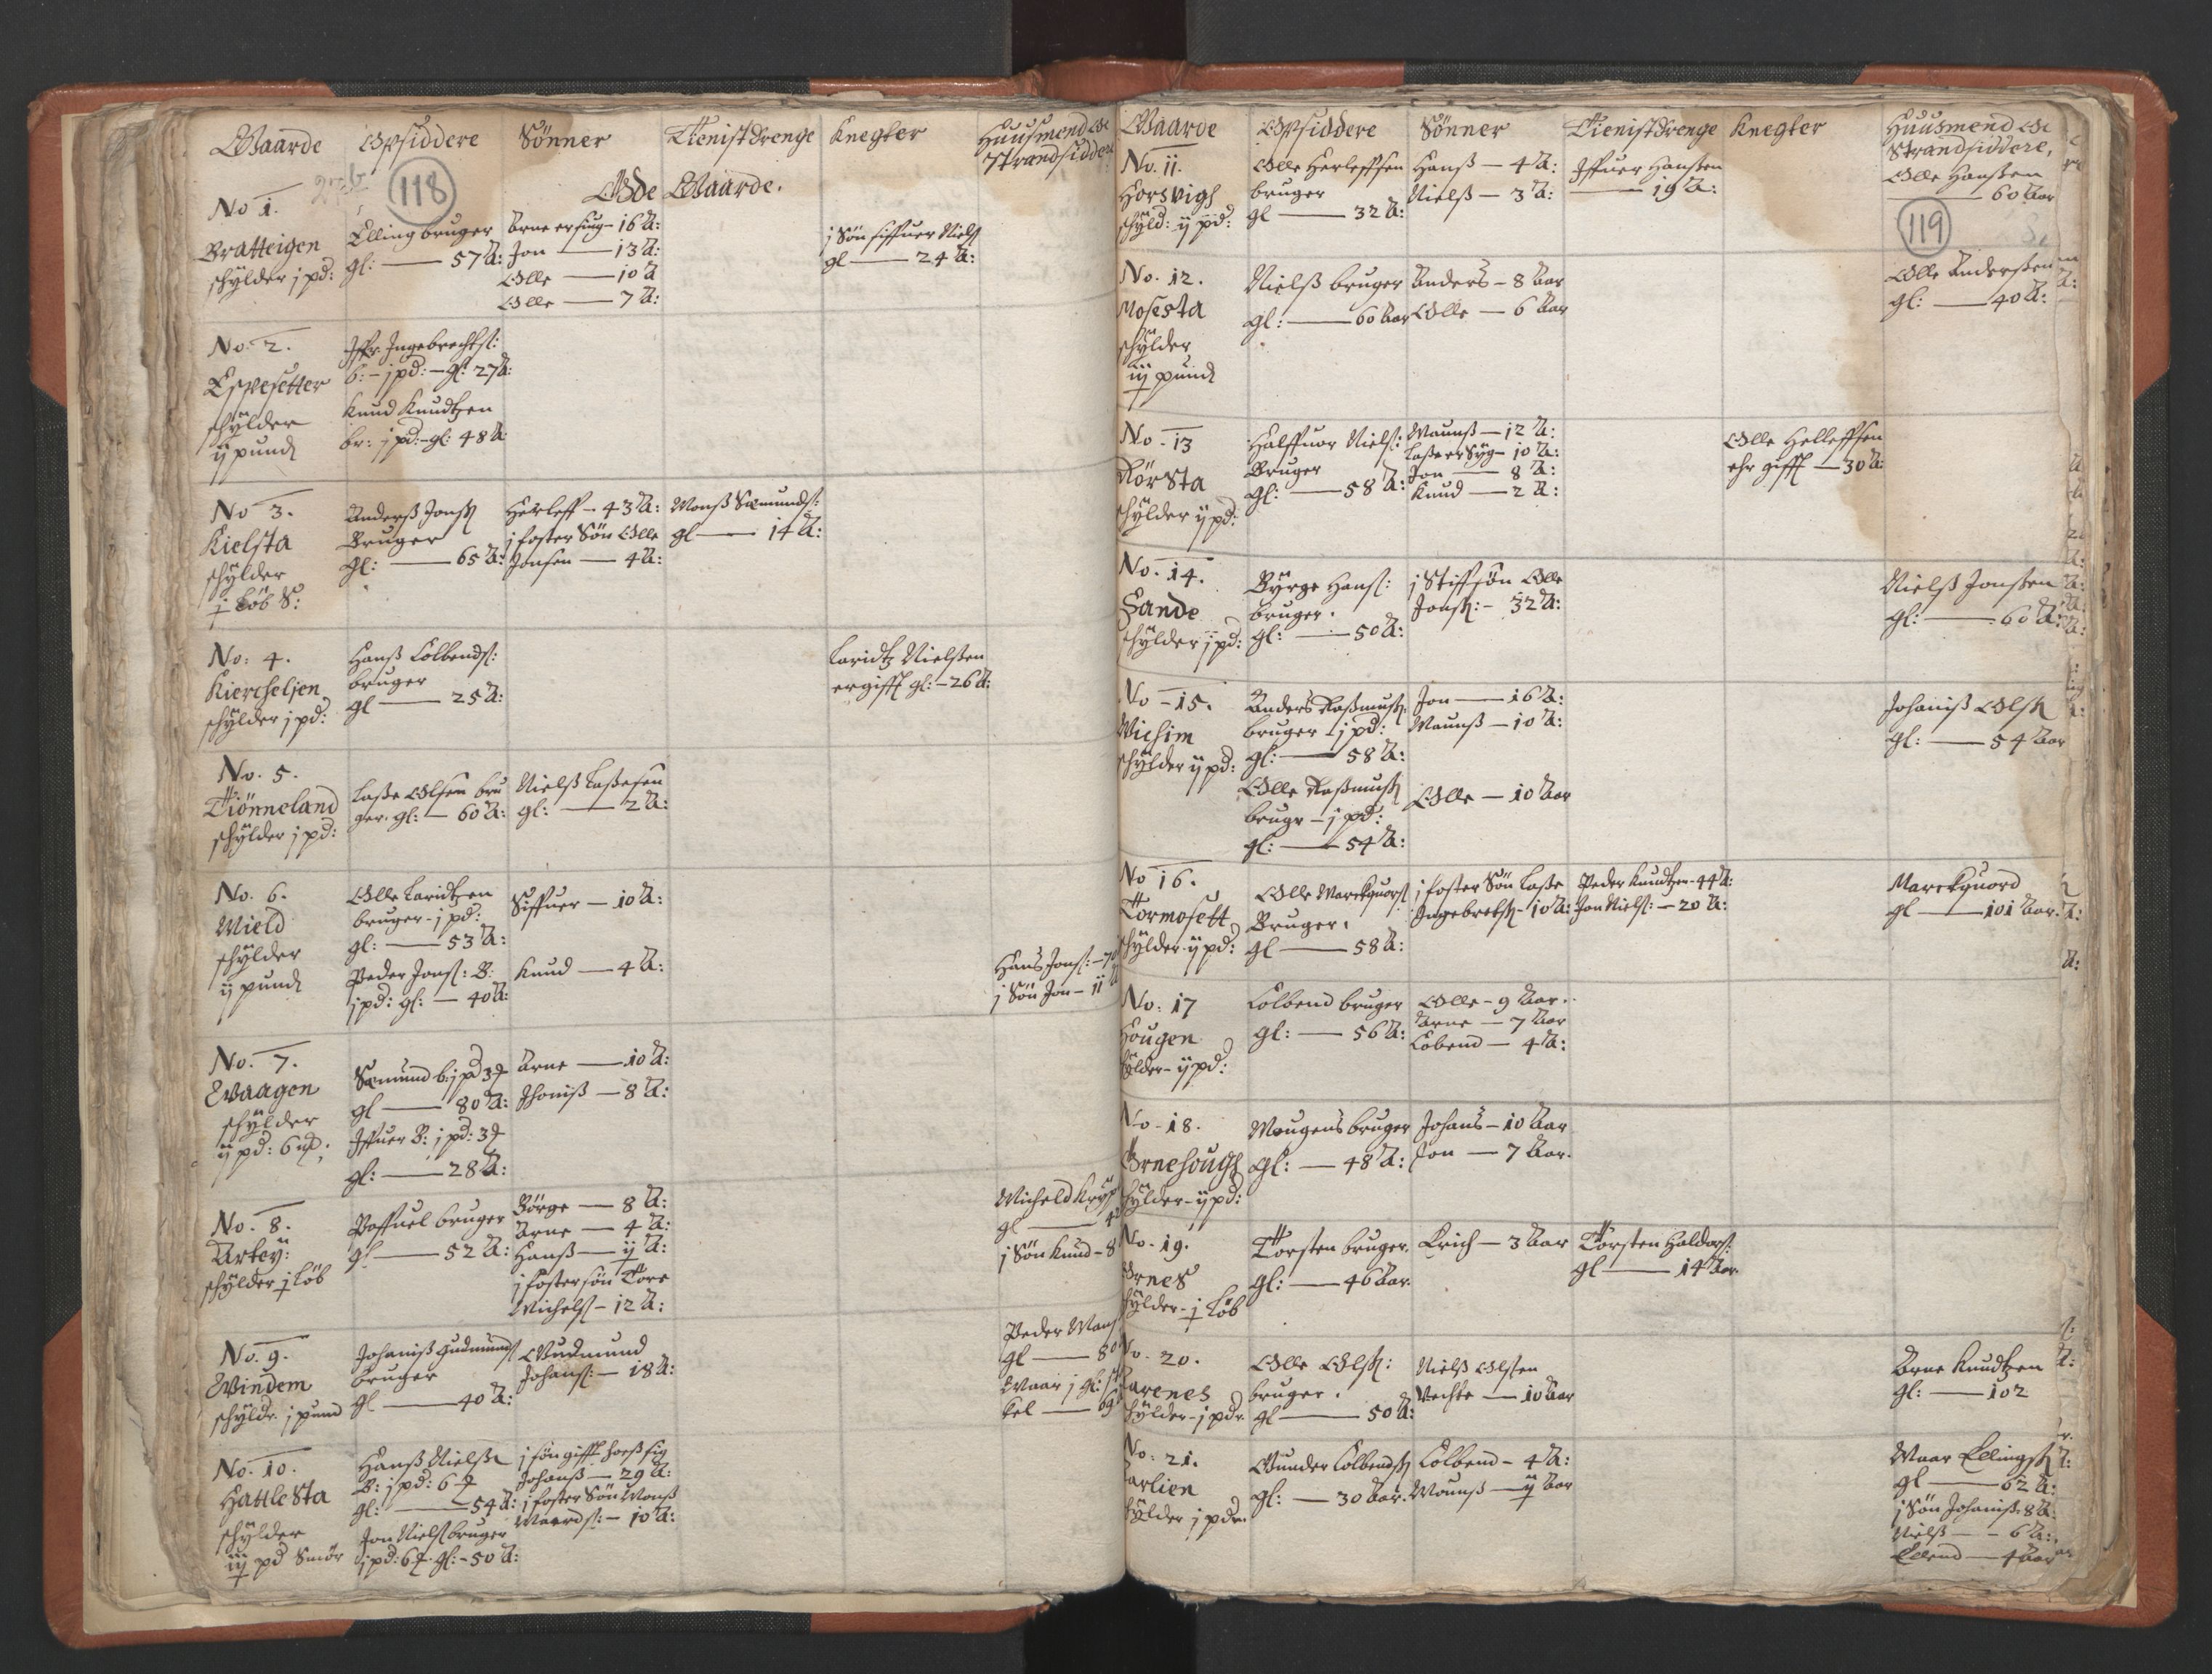 Gaarde Opsiddere Sönner Tienistdrenge Knegter Huusmend oc
Strandsiddere
276
118
Øde Gaarde.
No 1.
Bratteigen
schÿlder j pd:
Elling bruger
gl: — 57 A:
Arne er siug - 16 A:
Jon — 13 A:
Olle — 10 A
Olle — 7 A:
j Sön Siffuer Niels
gl — 24 A:
No. 2.
Espesetter
schÿlder
ij pund
Iffr. Ingebrechts:
b: - j pd: - gl: 27 A:
Knud Knudtzen
br: j pd: - gl: 48 A
No 3.
Kielsta
schÿlder
j Löb S:
Anders Jons
Bruger
gl: — 65 A:
Herleff - 43 A:
j foster Sön Olle
Jonsen — 4 A:
Monß Sæmunds:
gl — 14 A:
No: 4.
Kiercheljen
schÿlder j pd:
Hanß Colbends:
bruger
gl — 25 A:
Laridtz Nielßen
er gifft gl: - 26 A:
No. 5.
Tiönneland
schÿlder j pd:
Laße Olsen bru
ger. gl: — 60 A:
Nielß Laßesen
gl: — 2 A:
No. 6.
Mield
schÿlder
ij pund
Olle Laridtzen
bruger - j pd:
gl: — 53 A:
Siffuer — 10 A:
Peder Jons: B:
j pd: gl: — 40 A:
Knud — 4 A:
Hans Jons: - 70
j Sön Jon - 11
No. 7.
Waagen
schÿlder
ij pd: 6
Sæmund b: j pd 3
gl — 80 A:
Iffuer B: j pd: 3
gl: — 28 A:
Arne — 10 A:
Jhoniß — 8 A:
No. 8.
Artey:
schÿlder j Löb
Poffuel bruger
gl — 52 A:
Börge — 8 A:
Arne — 4 A:
Hanß — ij A:
j foster sön Tore
Michels - 12 A:
Micheld
gl — 42
j Sön Knud - 8
No. 9.
Windem
schÿldr. j pund
Johaniß Gudmunds
bruger
gl — 40 A:
Gudmund
Johans: — 18 A:
Peder Mons
gl — 80
No. 10.
Hattlesta
schÿlder
iij pd Smör
Hanß Nielßen
B: j pd: 6
gl: — 54 A:
Jon Niels bruger
j pd: 6 gl: - 50 A:
j sön gifft hoeß sig
Johanß — 29 A:
j foster Sön Monß
— 10 A:
Gaarde Opsiddere Sönner Tienistdrenge Knegter Huusmend oc
Strandsiddere,
119
No. 11.
Horsvigh
schÿld: ij pd:
Olle Herleffsen
bruger
gl — 32 A:
Hanß — 4 A:
Nielß — 3 A:
Iffuer Hanßen
— 19 A:
Olle Hanßen
— 60 Aar
No. 12.
Mosesta
schÿlder
iij pund
Nielß bruger
gl: — 60 Aar
Anders - 8 Aar
Olle — 6 Aar
Olle Anderßen
gl: — 40 A:
No. 13
Rörsta
schÿlder ij pd:
Halffuor Niels:
Bruger
gl: — 58 A:
Maunß — 12 A:
Laße er Syg - 10 A:
Jon — 8 A:
Knud — 2 A:
Olle Helleffsen
ehr gifft — 30 A:
No. 14.
Sande
schÿlder j pd:
Byrge Hans:
bruger.
gl: — 50 A:
j Stiffsön Olle
Jons: - 32 A:
Nielß Jonßen
gl: — 60 A:
No - 15.
Michim
schÿlder ij pd:
Anders Raßmuß
bruger - j pd:
gl: — 58 A:
Olle Raßmuß
brugr - j pd:
gl: — 54 A:
Jon — 16 A:
Maunß — 10 A:
Olle — 10 Aar
Johaniß Ols
gl: — 54 Aar
No 16.
Tormosett
schÿlder ij pd:
Olle Marckguors
Bruger.
gl — 58 A:
j foster Sön Laße
Ingebrets - 10 A:
Peder Knudtzen - 44 A:
Jon Niels: - 20 A:
Marckguord
gl — 101 Aar.
No: 17
Hougen
schÿlder - ij pd:
Colbend bruger
gl: — 56 A:
Olle - 9 Aar.
Arne — 7 Aar
Colbend — 4 A:
No - 18.
Ornehough
schÿlder - ij pd:
Mougens bruger
gl: — 48 A:
Johans - 10 Aar
Jon — 7 Aar.
No. 19.
Ornes
schÿlder - j Löb
Torsten bruger.
gl: — 46 Aar.
Erich — 3 Aar
Torsten Haldors:
gl — 14 Aar
No. 20.
arenes
schÿlder - j pdr.
Olle Ols:
bruger.
gl — 50 A:
Nielß Olßen
Vechte — 10 Aar
Arne Knudtzen
gl: — 102
No. 21.
arlien
schÿlder j pdr.
Gunder Colbends
gl: — 30 Aar.
Colbend - 4 A:
Mounß — ij Aar
Maar Ellings
gl — 62 A:
j Sön Johaniß 8 A:
Nielß — 6 A:
Ellend — 4 Aar